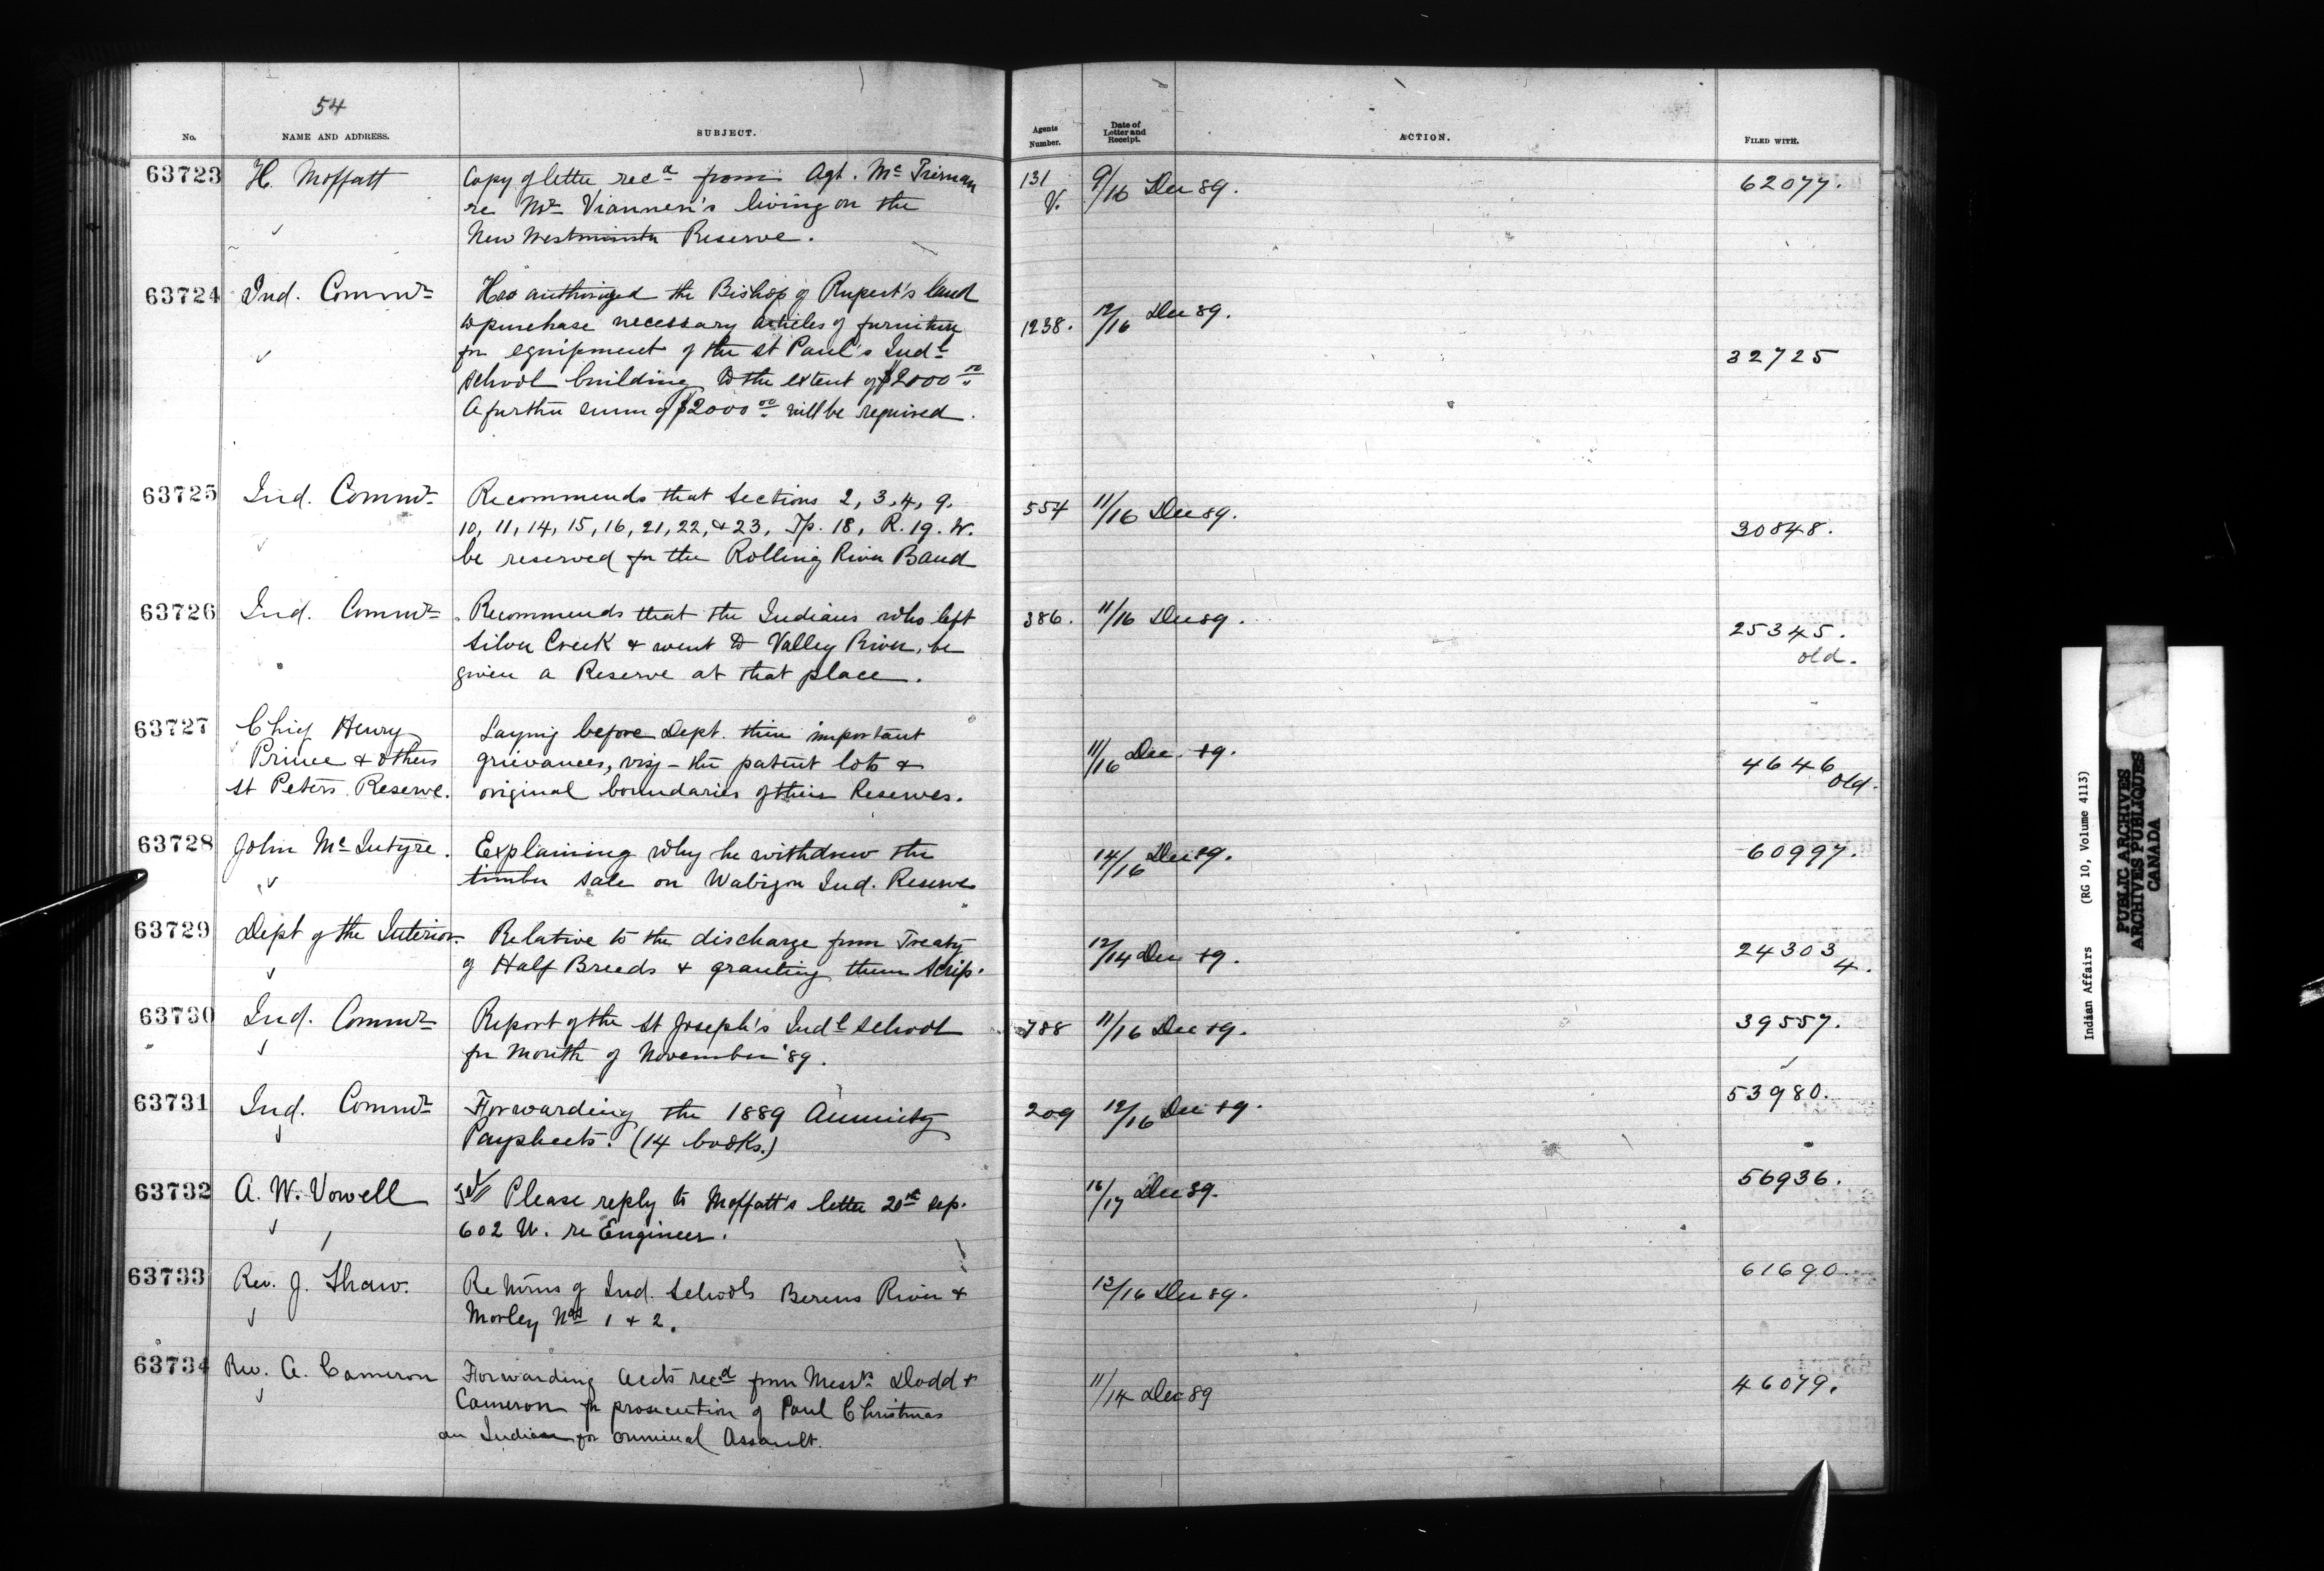 54
No. NAME AND ADDRESS. SUBJECT. Agents Number. Date of Letter and Receipt. ACTION. FILED WITH.
63723 H. Moffatt Copy of letter rec^d from Agt. M^c 131 9/16 Dec 89. 62077.
re living on the V.
New Westminster Reserve.
63724 Ind. Comm^r Has authorized the Bishop of Rupert's land
to purchase necessary articles of furniture 1238. 12/16 Dec 89.
for equipment of the St Paul's Ind^l 32725
School building to the extent of $2000 00
A further sum of $2000 00 will be required.
63725 Ind. Comm^r Recommends that Sections 2, 3, 4, 9. 554 11/16 Dec 89.
10, 11, 14, 15, 16, 21, 22, & 23, Tp. 18, R. 19. W. 30848.
be reserved for the Rolling River Band
63726 Ind. Comm^r Recommends that the Indians who left 386. 11/16 Dec 89. 25345.
Silver Creek & went to Valley River, be old.
given a Reserve at that place.
63727 Chief Henry Laying before Dept. their important
Prince & others grievances, viz - the patent lots & 11/16 Dec. 89. 4646
St Peters Reserve. original boundaries of their Reserves. old.
63728 John M^c Intyre. Explaining why he withdrew the 14/16 Dec 89. 60997.
timber sale on Wabigon Ind. Reserve
63729 Dept of the Interior. Relative to the discharge from Treaty 12/14 Dec 89. 24303
of Half Breeds & granting them Scrip. 4.
63730 Ind. Comm^r Report of the St Joseph's Ind^l School 788 11/16 Dec 89. 39557.
for Month of November '89.
63731 Ind. Comm^r Forwarding the 1889 Annuity 209 12/16 Dec 89. 53980.
Paysheets. (14 books.)
63732 A. W. Vowell Please reply to Moffatt's letter 20th Sep. 16/17 Dec 89. 56936.
602 W. re Engineer.
63733 Rev. J. Shaw. Returns of Ind. Schools Berens River & 13/16 Dec 89. 61690.
Morley Nos 1 & 2.
63734 Rev. A. Cameron Forwarding accts rec^d from Messrs Dodd & 11/14 Dec 89 46079.
Cameron for prosecution of Paul Christmas
an Indian for criminal Assault.
Indian Affairs (RG 10, Volume 4113)
PUBLIC ARCHIVES
ARCHIVES PUBLIQUES
CANADA